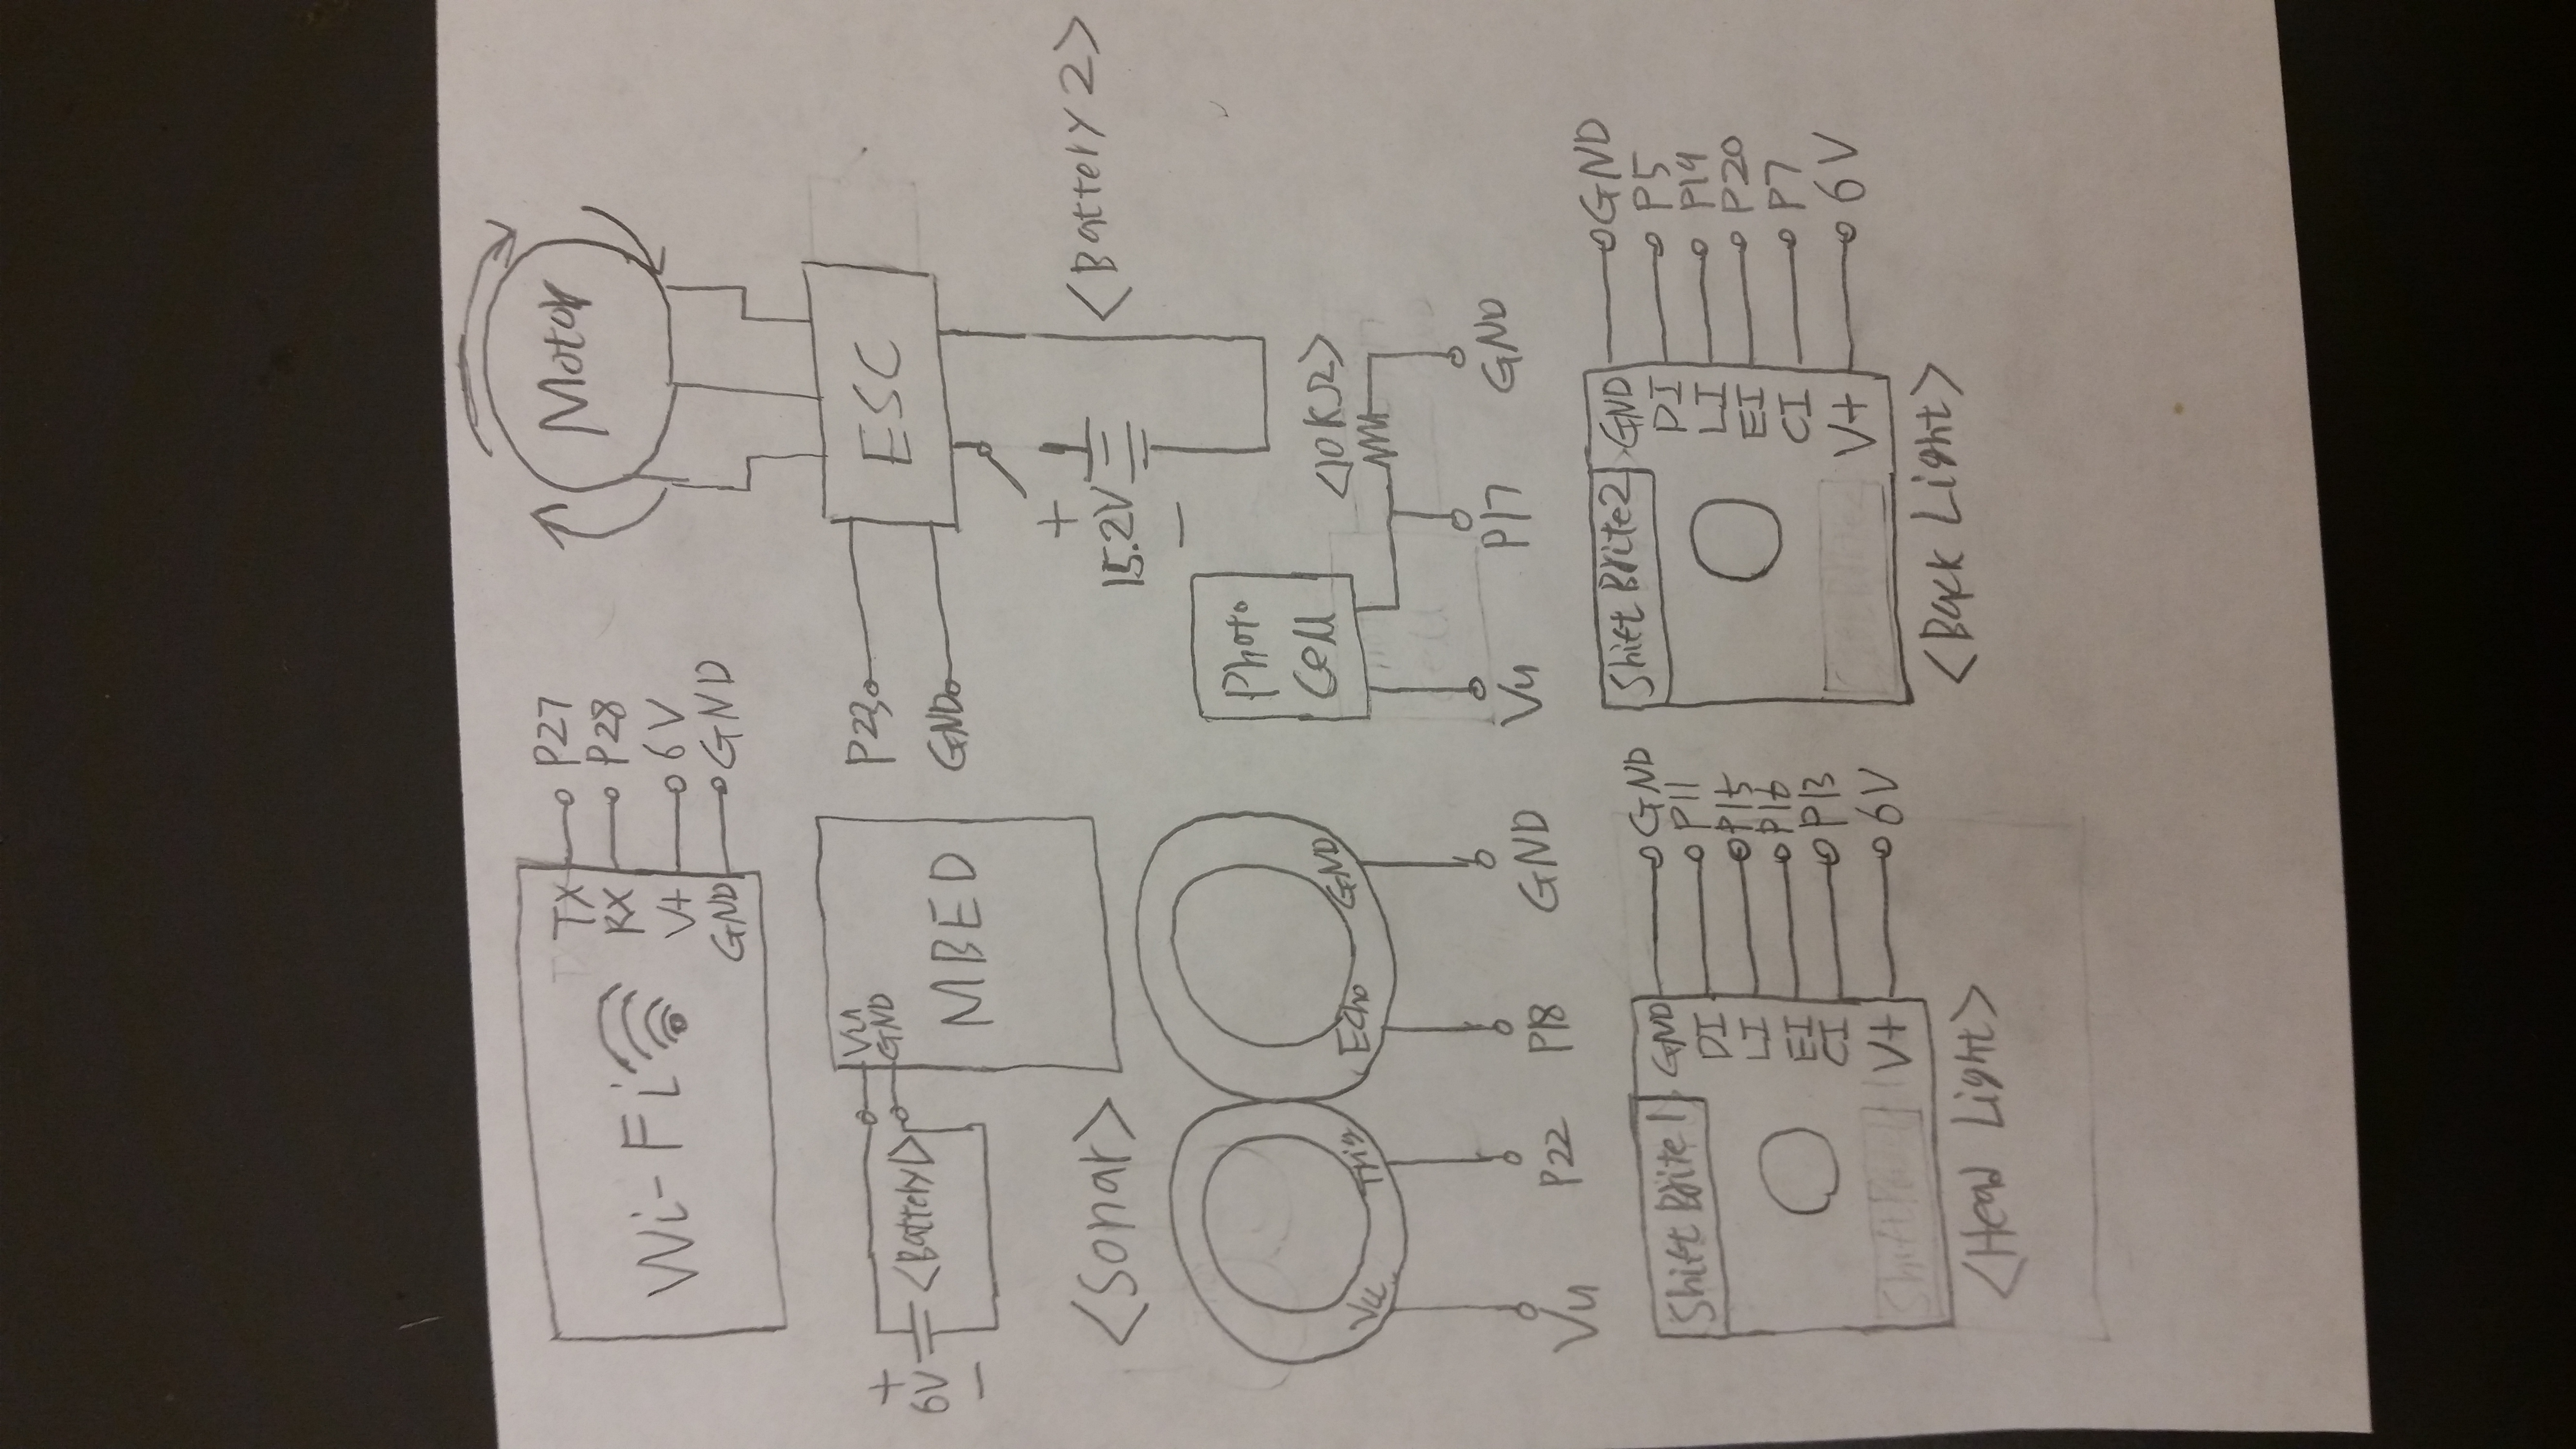 Wi-Fi
TX P27
RX P28
V+ 6V
GND GND
Motor
ESC
P23
GND
+
15.2V
-
<Battery 2>
+
6V
-
<Battery1>
Vu
GND
MBED
<Sonar>
Vcc Trig Echo GND
Vu P22 P18 GND
Photo
Cell
<10KΩ>
Vu P17 GND
Shift Brite 1
GND GND
DI P11
LI P15
EI P16
CI P13
V+ 6V
<Head Light>
Shift Brite2
GND GND
DI P5
LI P19
EI P20
CI P7
V+ 6V
<Back Light>